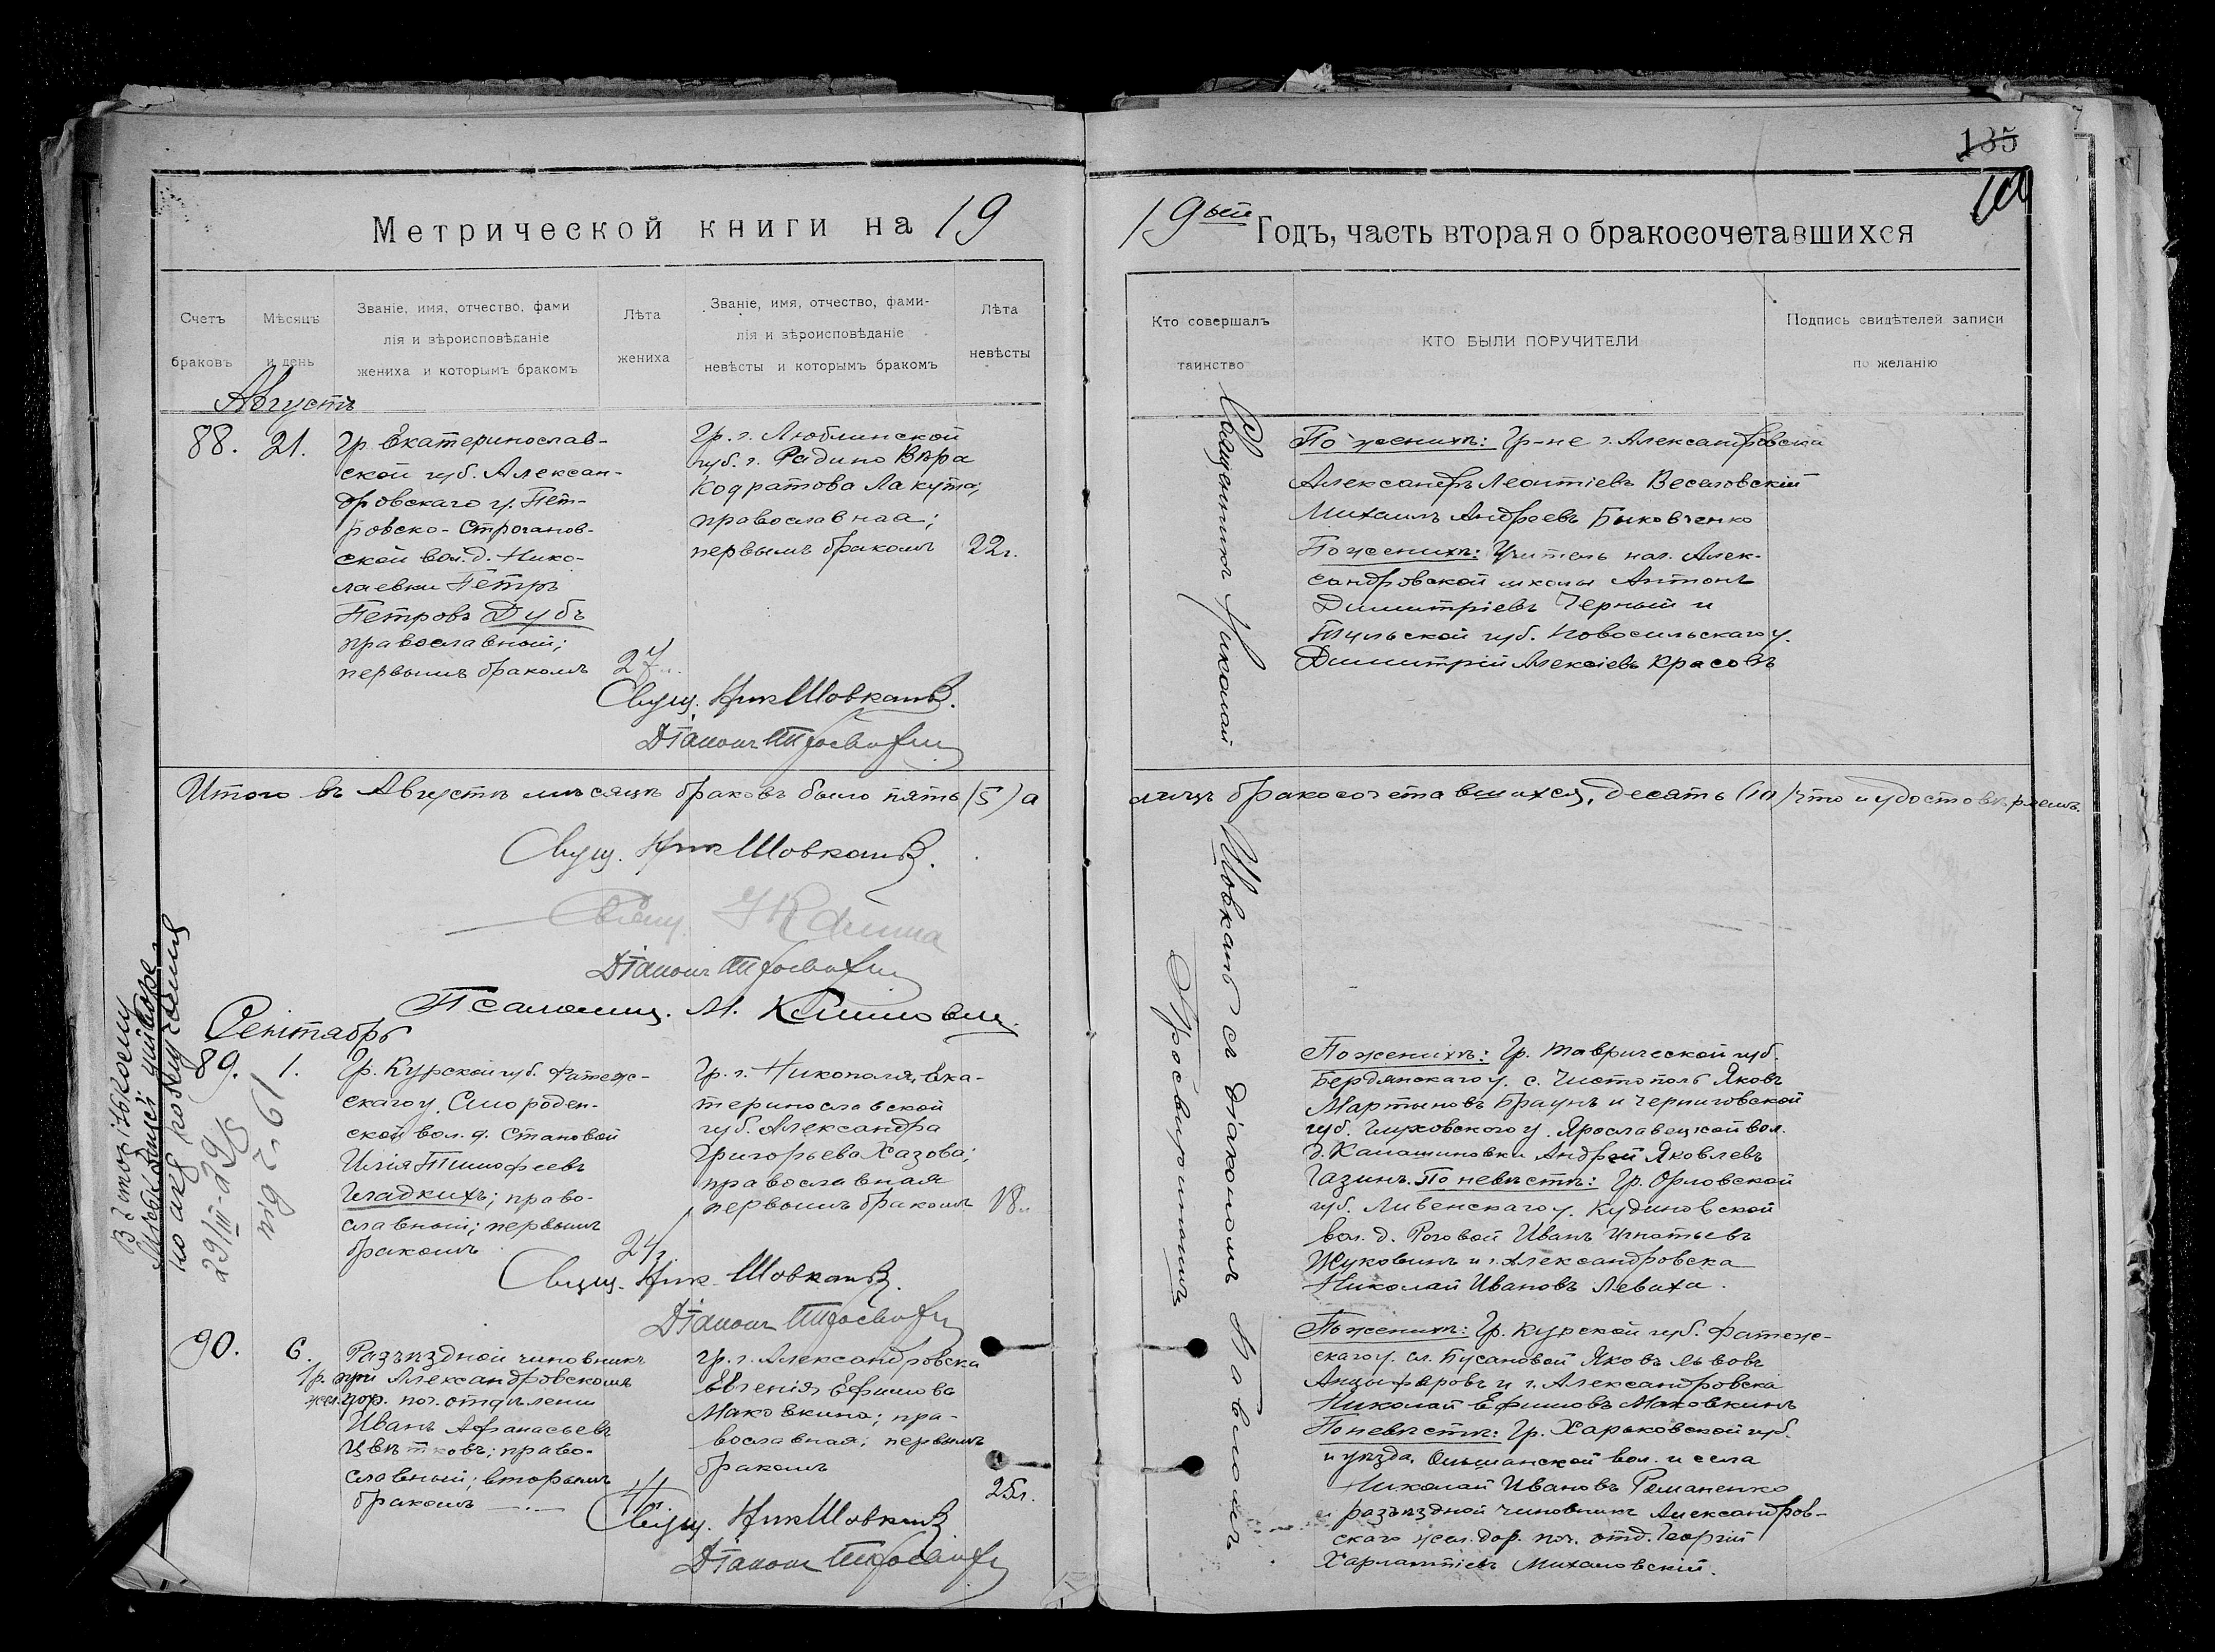 135
Метрической книги на 19
19ый Годъ, часть вторая о бракосочетавшихся
Счетъ
браковъ
Мѣсяцъ
и день
Званіе, имя, отчество, фами
лія и вѣроисповѣданіе
жениха и которымъ бракомъ
Лѣта
жениха
Званіе, имя, отчество, фами-
лія и вѣроисповѣданіе
невѣсты и которымъ бракомъ
Лѣта
невѣсты
Кто совершалъ
таинство
КТО БЫЛИ ПОРУЧИТЕЛИ
Подпись свидѣтелей записи
по желанію
Августъ
88. 21.
Гр. Екатеринослав-
ской губ. Алексан-
дровскаго у. Пет-
ровско-Строганов-
ской вол. д. Нико-
лаевки Петръ
Петровъ Дубъ
православный;
первымъ бракомъ
27
Гр. г. Люблинской
губ. г. Радино Вѣра
Кодратова Лакута;
православная;
первымъ бракомъ
22г.
Свящ. Ник Шовкопл.
Діаконъ
По женихѣ: Гр-не г. Александровска
Александръ Леонтіевъ Веселовскій
Михаилъ Андреевъ Быковченко
По женихѣ: Учитель нач. Алек-
сандровской школы Антонъ
Димитріевъ Черный и
Тульской губ. Новосильскаго у.
Димитрій Алексіевъ Красовъ
Священникъ Николай
съ діакономъ
Итого въ Августѣ мѣсяцѣ браковъ было пять (5) а
лицъ бракосочетавшихся, десять (10) что и удостовѣряемъ.
Свящ. Ник Шовкопл.
Свящ.
Діаконъ
Псаломщ. М. Климовиц.
Сентябрь
89. 1.
Гр. Курской губ. Фатеж-
скаго у. Смороден-
ской вол. д. Становой
Илія Тимофеевъ
Гладкихъ; право-
славный; первымъ
бракомъ
24
Гр. г. Никополя, Ека-
теринославской
губ. Александра
Григорьева Хазова;
православная
первымъ бракомъ
18
Свящ. Ник. Шовкопл.
Діаконъ
По женихѣ: Гр. Таврической губ.
Бердянскаго у. с. Чистополь Яковъ
Мартыновъ Браунъ и Черниговской
губ. Глуховского у. Ярославецкой вол.
д. Калашиновки Андрей Яковлевъ
Газинъ. По невѣстѣ: Гр. Орловской
губ. Ливенскаго у. Кудиновской
вол. д. Роговой Иванъ Игнатьевъ
Жуковинъ и г. Александровска
Николай Ивановъ Леваха.
90. 6.
Разъѣздной чиновникъ
при Александровскомъ
жел. дор. поч. отдѣленіи
Иванъ Афанасьевъ
Цвѣтковъ; право-
славный; вторымъ
бракомъ
гр. г. Александровска
Евгенія Ефимова
Маковкина; пра-
вославная; первымъ
бракомъ
25л.
Свящ. Ник Шовкопл.
Діаконъ
По женихѣ: Гр. Курской губ. Фатеж-
скаго у. сл. Бусановой Яковъ Львовъ
Анцыферовъ и г. Александровска
Николай Ефимовъ Маковкинъ
По невѣстѣ: Гр. Харьковской губ.
и уѣзда, Ольшанской вол. и села
Николай Ивановъ Романенко
и разъѣздной чиновникъ Александров-
скаго жел. дор. поч. отд. Георгій
Харлампіевъ Михаловскій.